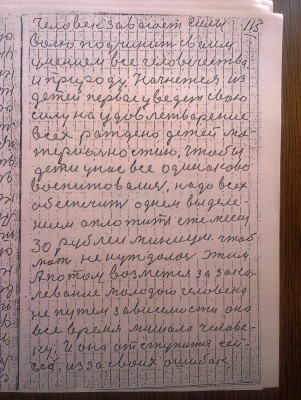 человек завоюет силы 113
волю подчинит своим
умением все человечества
и природу. Начнется из
детей первое уведет свою
силу на удовлетварение
всех ратдено детей ма-
териольностию, чтобы
дети у нас все одинаково
воспитовалис, надо всех
обеспечит одним выделе-
нием оплотитя еже месяц
30 рублей минищи. чтоб
мат не нуждалас этим.
А потом возметса за зака-
леваниe молодого человека
не путем зависимости она
все время мишала челове-
ку. И она отступится сей-
час, из за своих ошибак